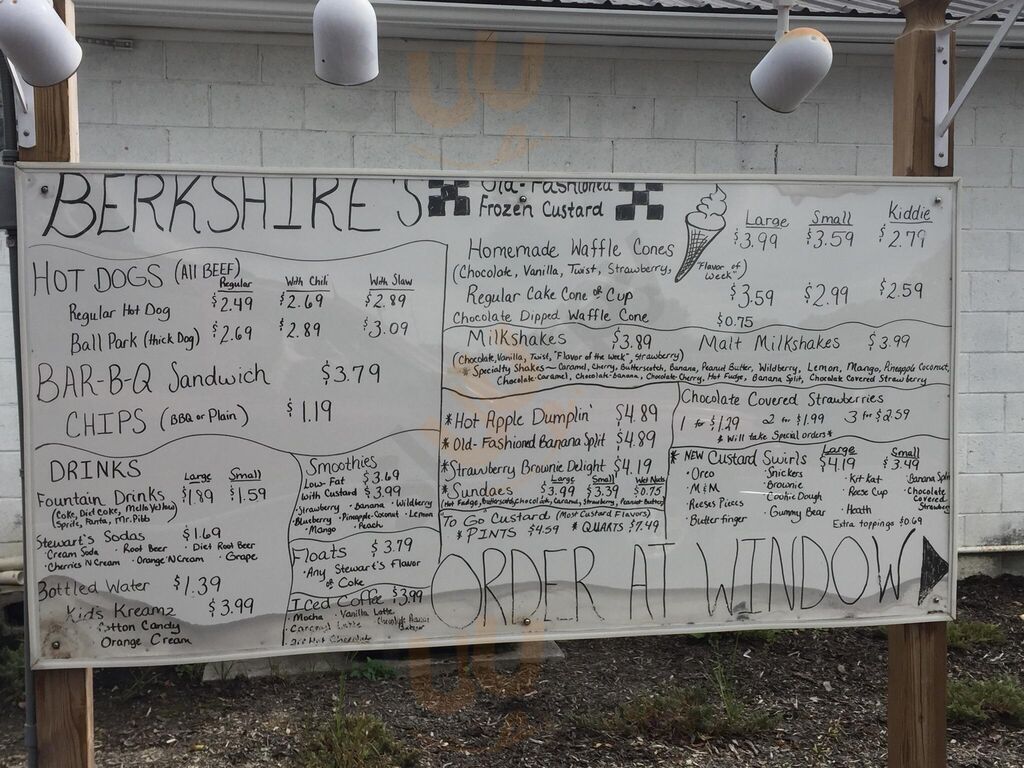 BERKSHIRE'S
Old-Fashioned
Frozen Custard
HOT DOGS (All BEEF)
Regular With Chili With Slaw
Regular Hot Dog $2.49 $2.69 $2.89
Ball Park (thick Dog) $2.69 $2.89 $3.09
BAR-B-Q Sandwich $3.79
CHIPS (BBQ or Plain) $1.19
DRINKS
Large Small
Fountain Drinks $1.89 $1.59
(Coke, Diet Coke, Mello Yellow
Sprite, Fanta, Mr. Pibb)
Stewart's Sodas $1.69
· Cream Soda · Root Beer · Diet Root Beer
· Cherries N Cream · Orange N Cream · Grape
Bottled Water $1.39
Kid's Kreamz $3.99
Cotton Candy
Orange Cream
Smoothies
Low-Fat $3.69
With Custard $3.99
· Strawberry · Banana · Wildberry
· Blueberry · Pineapple-Coconut · Lemon
· Mango · Peach
Floats $3.79
· Any Stewart's Flavor
or Coke
Iced Coffee $3.99
· Mocha · Vanilla Latte
· Caramel Latte
Large Small Kiddie
Homemade Waffle Cones $3.99 $3.59 $2.79
(Chocolate, Vanilla, Twist, Strawberry, "Flavor of Week")
Regular Cake Cone or Cup $3.59 $2.99 $2.59
Chocolate Dipped Waffle Cone $0.75
Milkshakes $3.89 Malt Milkshakes $3.99
(Chocolate, Vanilla, Twist, "Flavor of the Week", Strawberry)
* Specialty Shakes ~ Caramel, Cherry, Butterscotch, Banana, Peanut Butter, Wildberry, Lemon, Mango, Pineapple Coconut,
Chocolate-Caramel, Chocolate-Banana, Chocolate-Cherry, Hot Fudge, Banana Split, Chocolate Covered Strawberry
* Hot Apple Dumplin' $4.89
* Old-Fashioned Banana Split $4.89
* Strawberry Brownie Delight $4.19
Large Small Wet Nuts
* Sundaes $3.99 $3.39 $0.75
(Hot Fudge, Butterscotch, Chocolate, Caramel, Strawberry, Peanut Butter)
To Go Custard (Most Custard Flavors)
* PINTS $4.59 * QUARTS $7.49
Chocolate Covered Strawberries
1 for $1.29 2 for $1.99 3 for $2.59
* Will take Special orders *
Large Small
* NEW Custard Swirls $4.19 $3.49
· Oreo · Snickers · Kit Kat · Banana Split
· M&M · Brownie · Reese Cup · Chocolate Covered Strawberry
· Reeses Pieces · Cookie Dough · Heath
· Butterfinger · Gummy Bear
Extra toppings $0.69
ORDER AT WINDOW